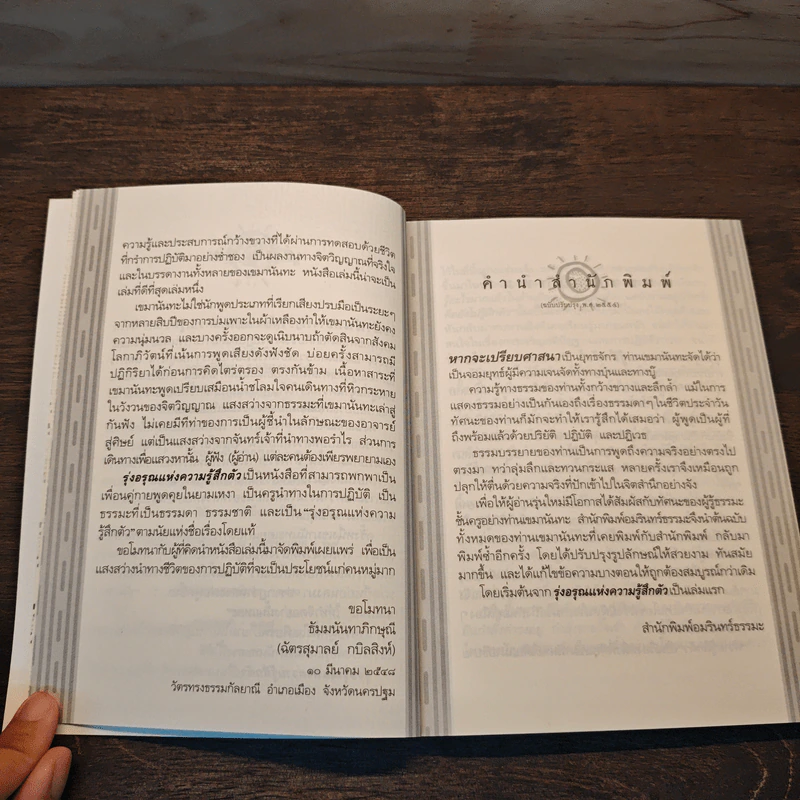 ความรู้และประสบการณ์กว้างขวางที่ได้ผ่านการทดสอบด้วยชีวิต
ที่กรำการปฏิบัติมาอย่างช่ำชอง เป็นผลงานทางจิตวิญญาณที่จริงใจ
และในบรรดางานทั้งหลายของเขมานันทะ หนังสือเล่มนี้น่าจะเป็น
เล่มที่ดีที่สุดเล่มหนึ่ง
เขมานันทะไม่ใช่นักพูดประเภทที่เรียกเสียงปรบมือเป็นระยะๆ
จากหลายสิบปีของการบ่มเพาะในผ้าเหลืองทำให้เขมานันทะยังคง
ความนุ่มนวล และบางครั้งออกจะดูเนิบนาบถ้าตัดสินจากสังคม
โลกาภิวัตน์ที่เน้นการพูดเสียงดังฟังชัด บ่อยครั้งสามารถมี
ปฏิกิริยาได้ก่อนการคิดไตร่ตรอง ตรงกันข้าม เนื้อหาสาระที่
เขมานันทะพูดเปรียบเสมือนน้ำชโลมใจคนเดินทางที่หิวกระหาย
ในวังวนของจิตวิญญาณ แสงสว่างจากธรรมะที่เขมานันทะเล่าสู่
กันฟัง ไม่เคยมีทีท่าของการเป็นผู้ชี้นำในลักษณะของอาจารย์
สู่ศิษย์ แต่เป็นแสงสว่างจากจันทร์เจ้าที่นำทางพอรำไร ส่วนการ
เดินทางเพื่อแสวงหานั้น ผู้ฟัง (ผู้อ่าน) แต่ละคนต้องเพียรพยายามเอง
รุ่งอรุณแห่งความรู้สึกตัวเป็นหนังสือที่สามารถพกพาเป็น
เพื่อนคู่กายพูดคุยในยามเหงา เป็นครูนำทางในการปฏิบัติ เป็น
ธรรมะที่เป็นธรรมดา ธรรมชาติ และเป็น“รุ่งอรุณแห่งความ
รู้สึกตัว”ตามนัยแห่งชื่อเรื่องโดยแท้
ขอโมทนากับผู้ที่คิดนำหนังสือเล่มนี้มาจัดพิมพ์เผยแพร่ เพื่อเป็น
แสงสว่างนำทางชีวิตของการปฏิบัติที่จะเป็นประโยชน์แก่คนหมู่มาก
ขอโมทนา
ธัมมนันทาภิกษุณี
(ฉัตรสุมาลย์ กบิลสิงห์)
๑๐ มีนาคม ๒๕๔๘
วัตรทรงธรรมกัลยาณี อำเภอเมือง จังหวัดนครปฐม
คำนำสำนักพิมพ์
(ฉบับปรับปรุง, พ.ศ.๒๕๕๔)
หากจะเปรียบศาสนาเป็นยุทธจักร ท่านเขมานันทะจัดได้ว่า
เป็นจอมยุทธ์ผู้มีความเจนจัดทั้งทางบุ๋นและทางบู๊
ความรู้ทางธรรมของท่านทั้งกว้างขวางและลึกล้ำ แม้ในการ
แสดงธรรมอย่างเป็นกันเองถึงเรื่องธรรมดาๆ ในชีวิตประจำวัน
ทัศนะของท่านก็มักจะทำให้เรารู้สึกได้เสมอว่า ผู้พูดเป็นผู้ที่
ถึงพร้อมแล้วด้วยปริยัติ ปฏิบัติ และปฏิเวธ
ธรรมบรรยายของท่านเป็นการพูดถึงความจริงอย่างตรงไป
ตรงมา ทว่าลุ่มลึกและทวนกระแส หลายครั้งเราจึงเหมือนถูก
ปลุกให้ตื่นด้วยความจริงที่ปักเข้าไปในจิตสำนึกอย่างจัง
เพื่อให้ผู้อ่านรุ่นใหม่มีโอกาสได้สัมผัสกับทัศนะของผู้รู้ธรรมะ
ชั้นครูอย่างท่านเขมานันทะ สำนักพิมพ์อมรินทร์ธรรมะจึงนำต้นฉบับ
ทั้งหมดของท่านเขมานันทะที่เคยพิมพ์กับสำนักพิมพ์ กลับมา
พิมพ์ซ้ำอีกครั้ง โดยได้ปรับปรุงรูปลักษณ์ให้สวยงาม ทันสมัย
มากขึ้น และได้แก้ไขข้อความบางตอนให้ถูกต้องสมบูรณ์กว่าเดิม
โดยเริ่มต้นจาก รุ่งอรุณแห่งความรู้สึกตัวเป็นเล่มแรก
สำนักพิมพ์อมรินทร์ธรรมะ